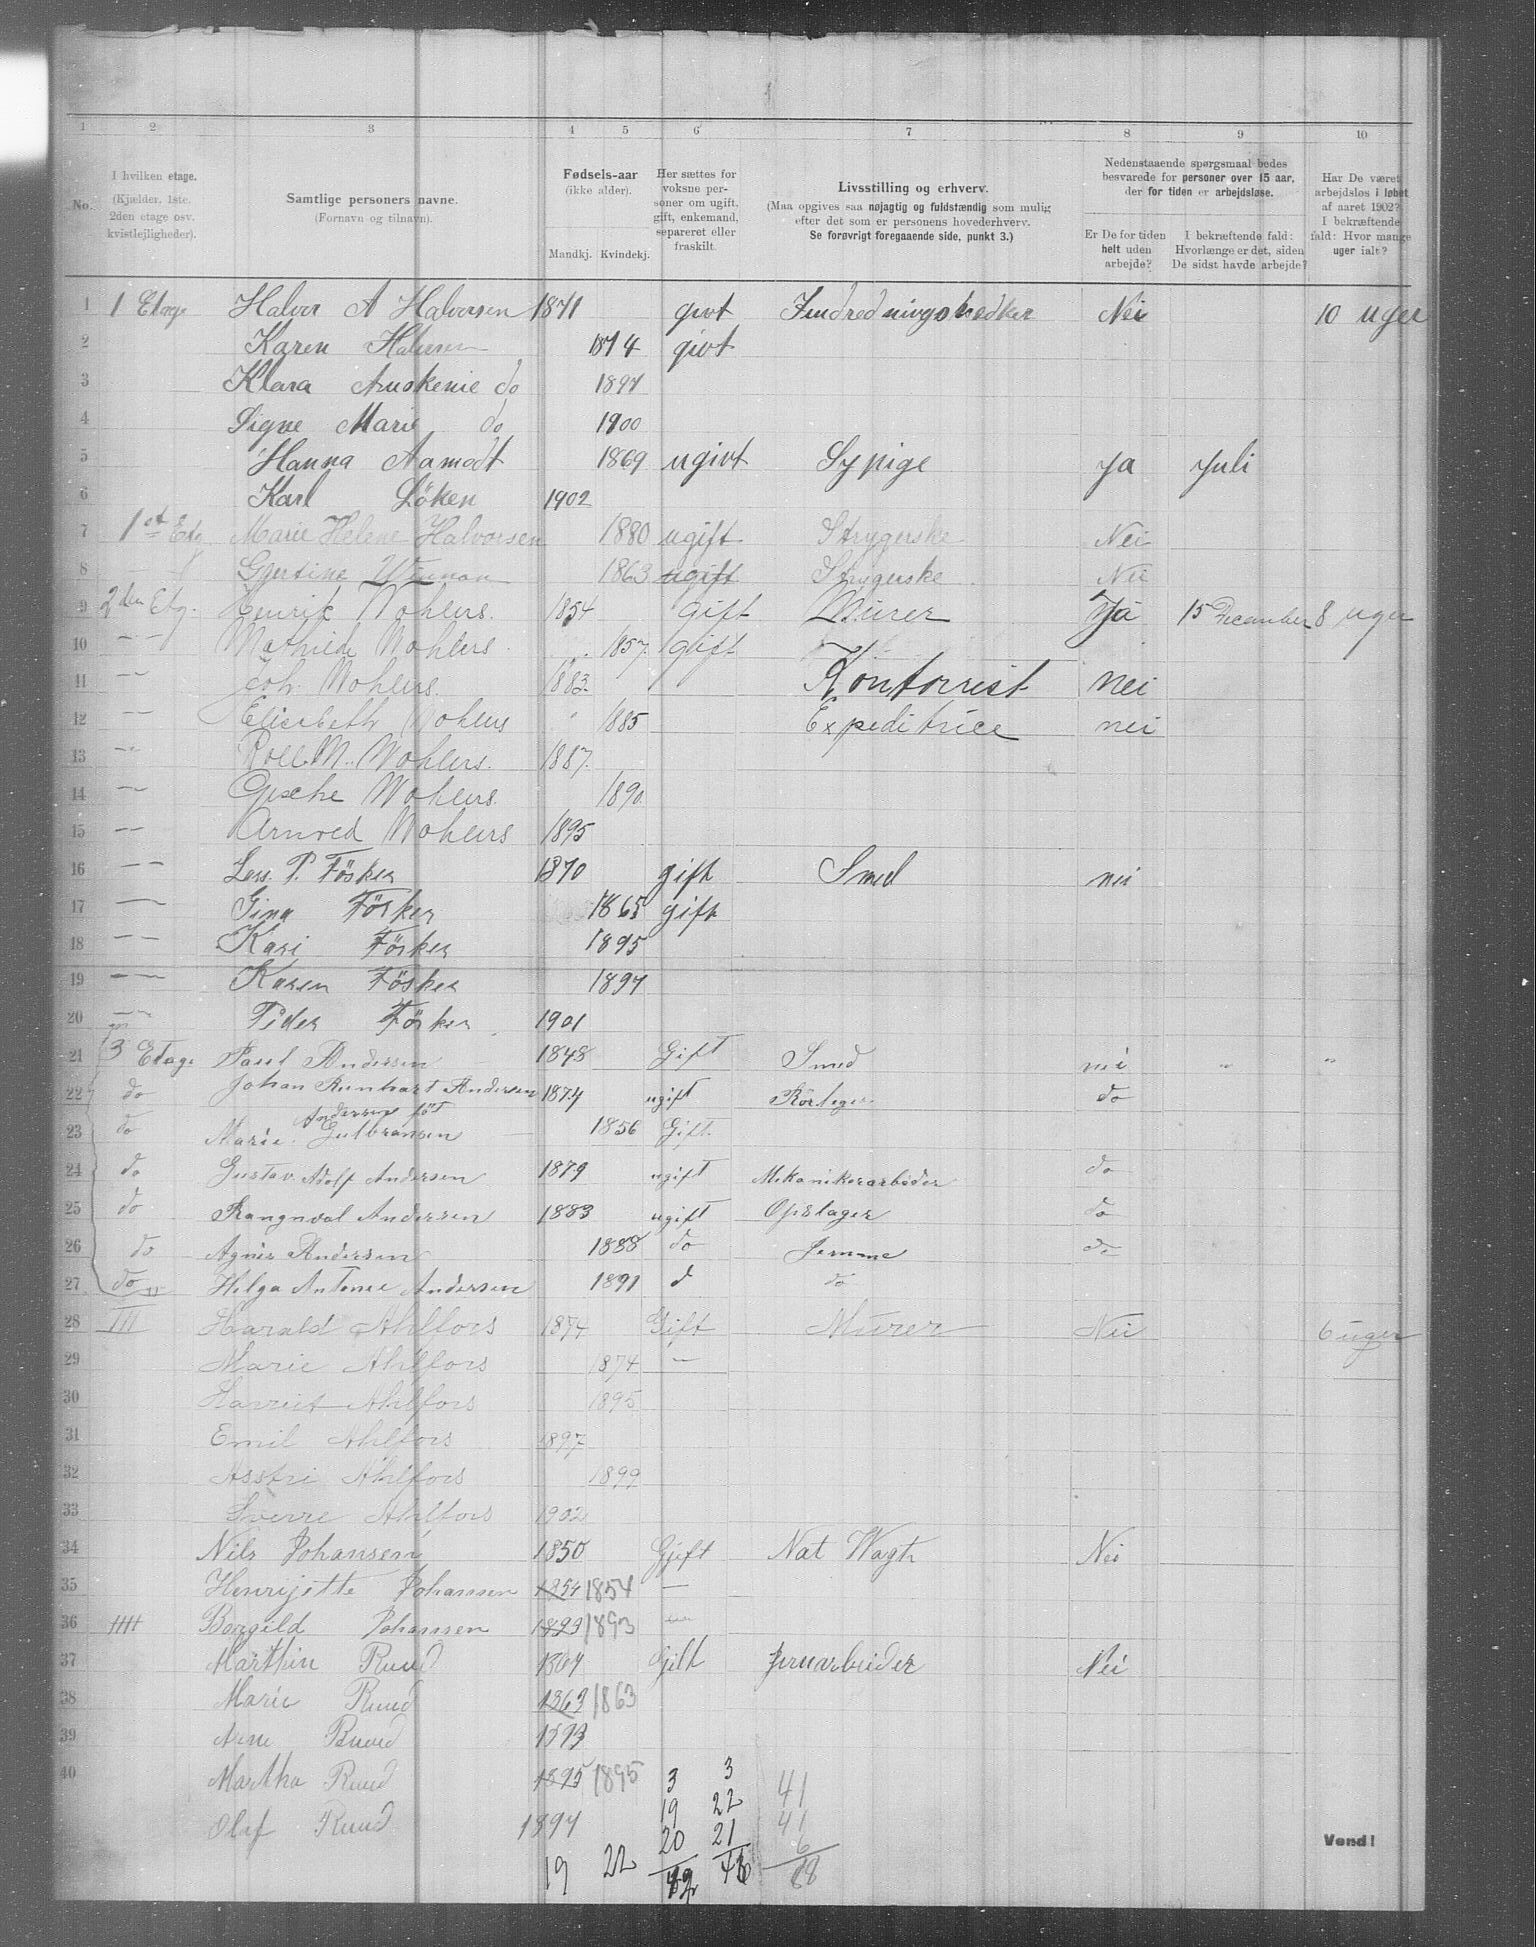 1 2 3 4 5 6 7 8 9 10
No.
I hvilken etage.
(Kjælder, 1ste,
2den etage osv.
kvistleiligheder).
Samtlige personers navne.
(Fornavn og tilnavn).
Fødsels-aar
(ikke alder).
Mandkj. Kvindekj.
Her sættes for
voksne per-
soner om ugift,
gift, enkemand,
separeret eller
fraskilt.
Livsstilling og erhverv.
(Maa opgives saa nøjagtig og fuldstændig som mulig
efter det som er personens hovederhverv.
Se forøvrigt foregaaende side, punkt 3.)
Nedenstaaende spørgsmaal bedes
besvarede for personer over 15 aar,
der for tiden er arbejdsløse.
Er De for tiden
helt uden
arbejde?
I bekræftende fald:
Hvorlænge er det, siden
De sidst havde arbejde?
Har De været
arbejdsløs i løbet
af aaret 1902?
I bekræftende
fald: Hvor mange
uger ialt?
1 1 Etage Halvor A Halvorsen 1871 givt Indredningssnedker Nei 10 uger
2 Karen Halvorsen 1874 givt
3 Klara do 1897
4 Signe Marie do 1900
5 Hanna Aamodt 1869 ugivt Sypige Ja Juli
6 Karl Löken 1902
7 1ste Etg. Marie Helene Halvorsen 1880 ugift Strygerske Nei
8 Gjertine 1863 ugift Strygerske Nei
9 2den Etg. Henrik Wohlers 1854 gift Murer Ja 15 December 8 uger
10 — Mathilde Wohlers 1857 gift
11 — Joh. Wohlers. 1883. Kontorrist nei
12 — Elisabeth Wohlers 1885 Expeditrice nei
13 — M. Wohlers. 1887.
14 — Wohlers. 1890.
15 — Arnved Wohlers 1895
16 — P. Fösker 1870 gift Smed nei
17 — Gina Fösker 1865 gift
18 — Kari Fösker 1895
19 — Karen Fösker 1897
20 — Peder Fösker 1901
21 3 Etage Paul Andersen 1848 Gift Smed nei " "
22 do Johan Reinhart Andersen 1874 ugift Rörleger do
Andersen föt
23 do Marie Gulbransen 1856 Gift
24 do Gustav Adolf Andersen 1879 ugift Mekanikerarbeder do
25 do Rangnval Andersen 1883 ugift Opslager do
26 do Agnes Andersen 1888 do Jemme do
27 do Helga Antonie Andersen 1891 d do
28 III Harald Ahlfors 1874 Gift Murer Nei 6 uger
29 Marie Ahlfors 1874 —
30 Harriet Ahlfors 1895
31 Emil Ahlfors 1897
32 Asstri Ahlfors 1899
33 Sverre Ahlfors 1902
34 Nils Johansen 1850 Gjeft Nat Wagt Nei
35 Henrijette Johansen 1854 1854 —
36 IIII Borgild Johansen 1893 1893 —
37 Marthin Ruud 1867 Gift Jernarbeider Nei
38 Marie Ruud 1863 1863
39 Arne Ruud 1893
40 Martha Ruud 1895 1895 3 3 41
Olaf Ruud 1897 19 22 41
20 21 6
19 22 42 46 88
Vend!